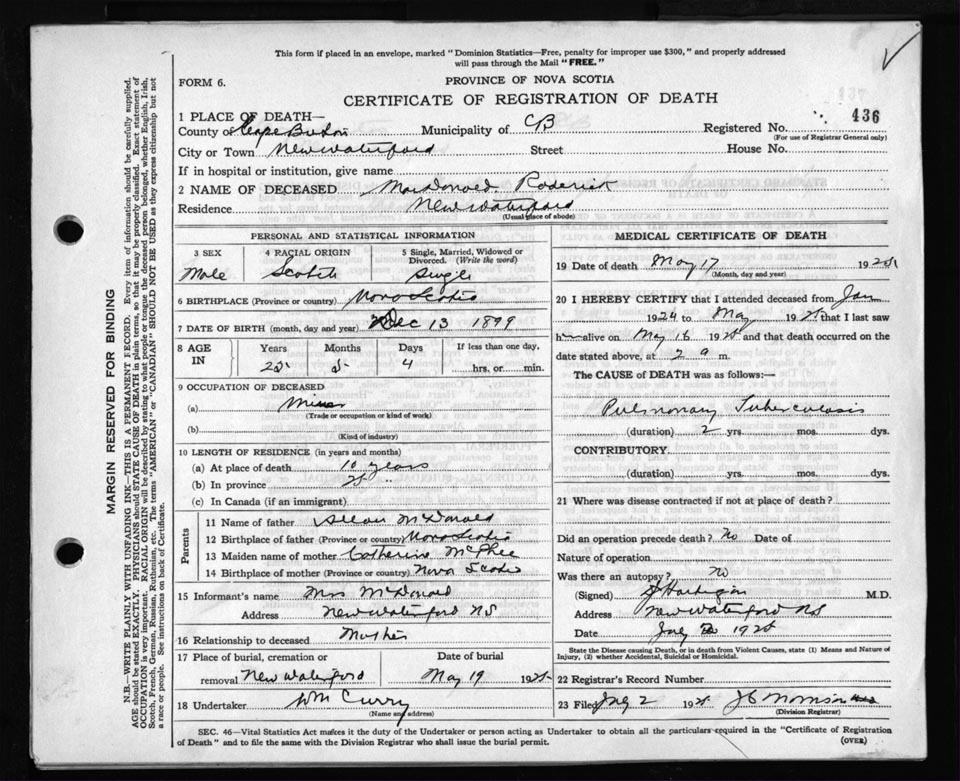 This form if placed in an envelope, marked "Dominion Statistics—Free, penalty for improper use $300," and properly addressed
will pass through the Mail "FREE."
FORM 6.
PROVINCE OF NOVA SCOTIA
CERTIFICATE OF REGISTRATION OF DEATH
1 PLACE OF DEATH—
436
County of Cape Breton Municipality of CB Registered No.
(For use of Registrar General only)
City or Town New Waterford Street House No.
If in hospital or institution, give name
2 NAME OF DECEASED MacDonald Roderick
Residence New Waterford
(Usual place of abode)
PERSONAL AND STATISTICAL INFORMATION
3 SEX 4 RACIAL ORIGIN 5 Single, Married, Widowed or
Divorced. (Write the word)
Male Scotch Single
6 BIRTHPLACE (Province or country) Nova Scotia
7 DATE OF BIRTH (month, day and year) Dec 13 1899
8 AGE IN Years Months Days If less than one day,
25 5 4 hrs. or min.
9 OCCUPATION OF DECEASED
(a) Miner
(Trade or occupation or kind of work)
(b)
(Kind of industry)
10 LENGTH OF RESIDENCE (in years and months)
(a) At place of death 10 years
(b) In province 25 "
(c) In Canada (if an immigrant)
Parents
11 Name of father Allan McDonald
12 Birthplace of father (Province or country) Nova Scotia
13 Maiden name of mother Catherine McPhee
14 Birthplace of mother (Province or country) Nova Scotia
15 Informant's name Mrs McDonald
Address New Waterford NS
16 Relationship to deceased Mother
17 Place of burial, cremation or Date of burial
removal New Waterford May 19 1925
18 Undertaker WM Curry
(Name and address)
MEDICAL CERTIFICATE OF DEATH
19 Date of death May 17 1925
(Month, day and year)
20 I HEREBY CERTIFY that I attended deceased from Jan
1924 to May 1925 that I last saw
h alive on May 16 1925 and that death occurred on the
date stated above, at 2 a m.
The CAUSE of DEATH was as follows:—
Pulmonary Tuberculosis
(duration) 2 yrs. mos. dys.
CONTRIBUTORY
(duration) yrs. mos. dys.
21 Where was disease contracted if not at place of death?
Did an operation precede death? No Date of
Nature of operation
Was there an autopsy? no
(Signed) M.D.
Address New Waterford NS
Date July 2 1925
State the Disease causing Death, or in death from Violent Causes, state (1) Means and Nature of
Injury, (2) whether Accidental, Suicidal or Homicidal.
22 Registrar's Record Number
23 Filed July 2 1925
(Division Registrar)
SEC. 46—Vital Statistics Act makes it the duty of the Undertaker or person acting as Undertaker to obtain all the particulars required in the "Certificate of Registration
of Death" and to file the same with the Division Registrar who shall issue the burial permit.
(OVER)
MARGIN RESERVED FOR BINDING
N.B.—WRITE PLAINLY WITH UNFADING INK—THIS IS A PERMANENT RECORD. Every item of information should be carefully supplied.
AGE should be stated EXACTLY. PHYSICIANS should STATE CAUSE OF DEATH in plain terms, so that it may be properly classified. Exact statement of
OCCUPATION is very important. RACIAL ORIGIN will be described by stating to what people or tongue the deceased person belonged, whether English, Irish,
Scotch, French, German, Russian, Ruthenian, etc. The terms "AMERICAN" or "CANADIAN" SHOULD NOT BE USED as they express citizenship but not
a race or people. See instructions on back of Certificate.